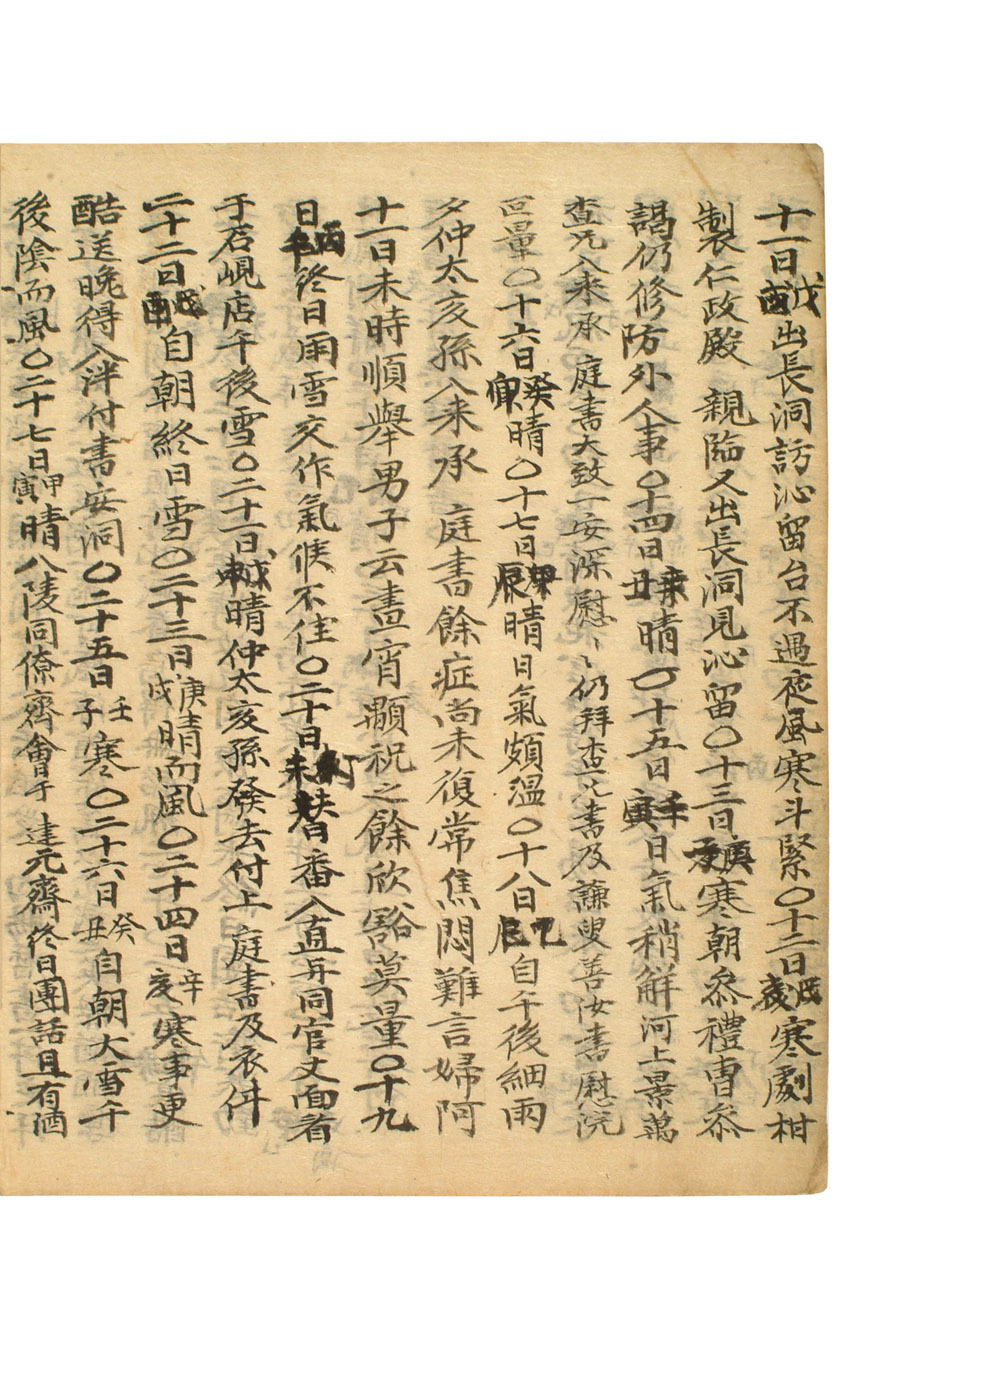 十一日戊戌出長洞訪沁留台不遇夜風寒斗緊〇十二日寒劇相
製仁政殿 親臨又出長洞見沁留〇十三日庚子寒朝叅禮曺叅
謁仍修防外人事〇十四日丑晴〇十五日壬寅日氣稍解河上景萬
查兄入来承 庭書大致一安深慰〻仍拜查兄書及謙叟善汝書慰浣
叵量〇十六日癸卯晴〇十七日甲辰晴日氣頗溫〇十八日乙巳自午後細雨
夕仲太亥孫入来承 庭書餘症尚未復常焦悶難言婦阿
十一日未時順舉男子云晝宵顒祝之餘欣豁莫量〇十九
日丙午終日雨雪交作氣候不佳〇二十日丁未替番入直与同官丈面看
于石峴店午後雪〇二十一日戊申晴仲太亥孫發去付上 庭書及衣件
二十二日己酉自朝終日雪〇二十三日庚戌晴而風〇二十四日辛亥寒事更
酷送晚得入泮付書安洞〇二十五日壬子寒〇二十六日癸丑自朝大雪午
後陰而風〇二十七日甲寅晴八陵同僚齊會于達元齋終日團話且有酒